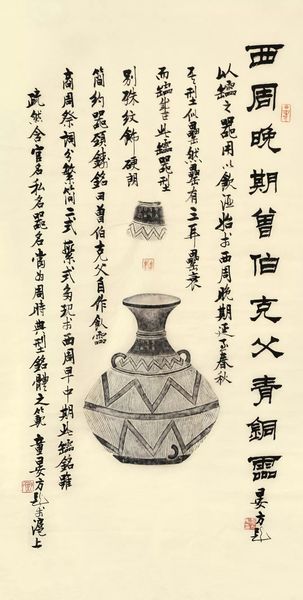 西周晚期曾伯克父青銅霝 晏方乩
以鑐之器用以飲酒始於西周晚期延至春秋
其型似罍然罍有三耳罍衰
而鑐生此鑐器型
別殊紋飾硬朗
簡約器頸鑄銘曰曾伯克父自作飲霝
商周祭詞分繁簡二式繁式多現於西周早中期此鑐銘雖
疏然含官名私名器名當為周時典型銘體之範 童晏方乩於滬上